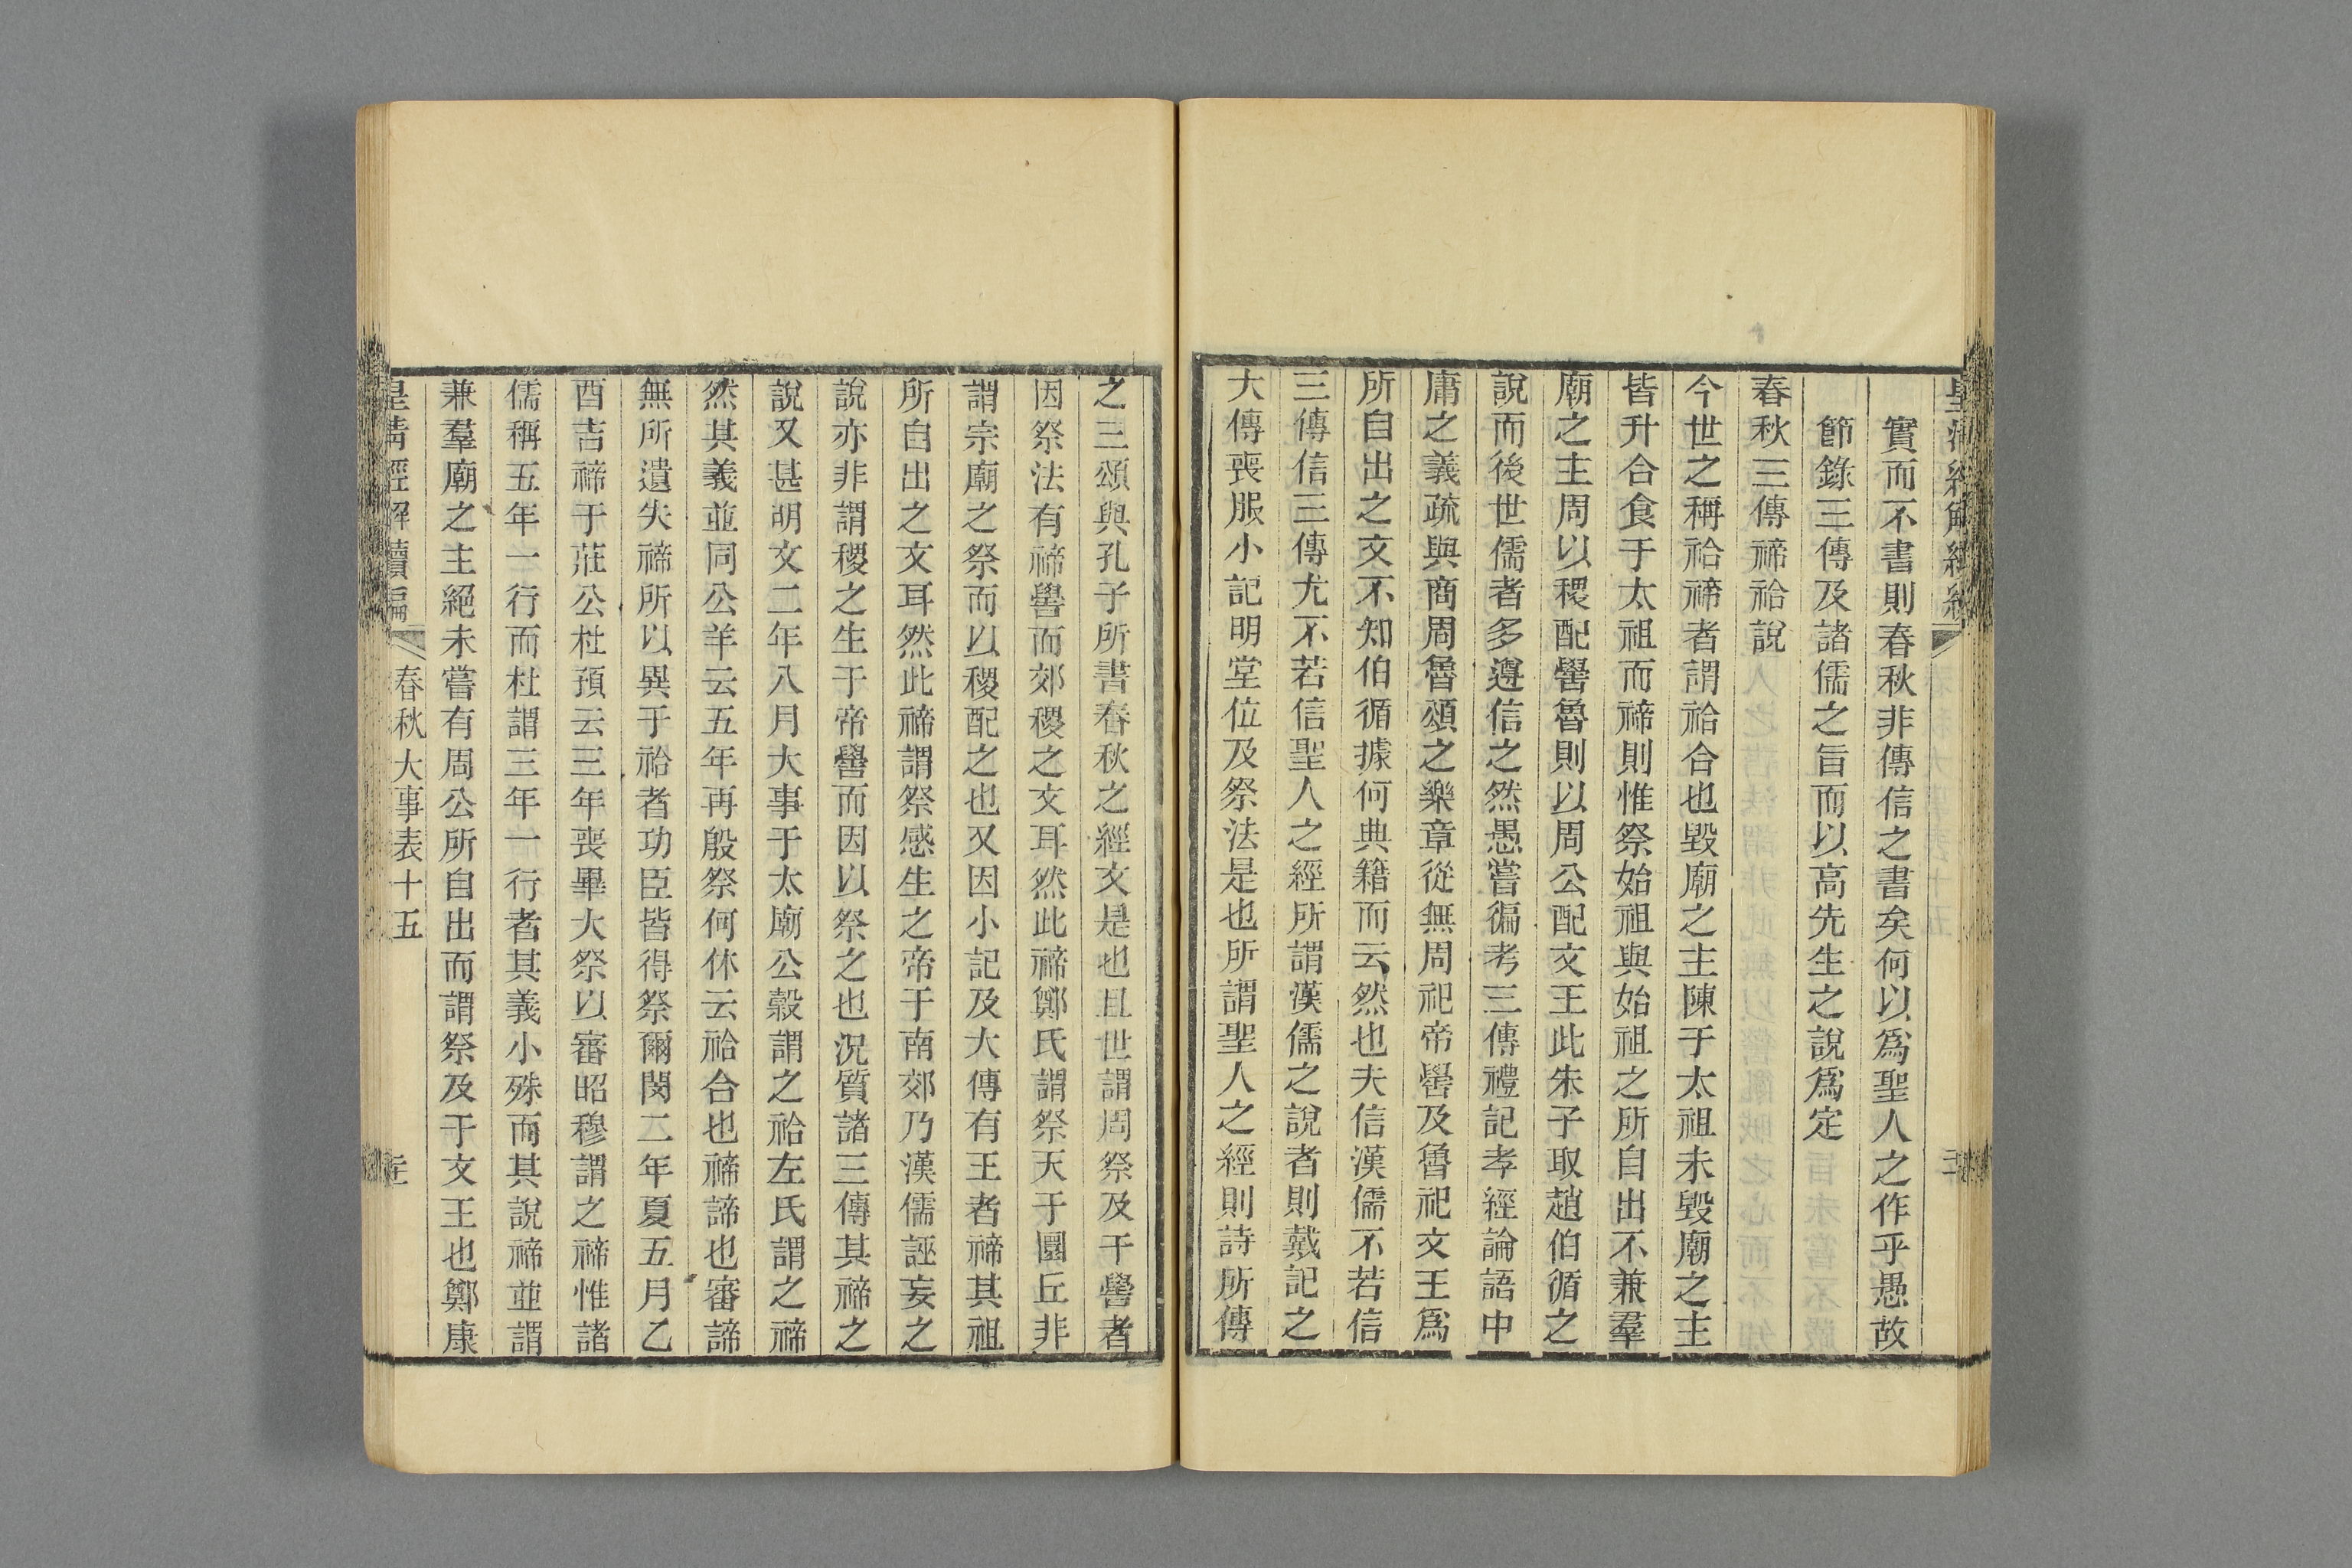 實而不書則春秋非傳信之書矣何以爲聖人之作乎愚故
節錄三傳及諸儒之旨而以高先生之說爲定
春秋三傳禘祫說
今世之稱祫禘者謂祫合也毀廟之主陳于太祖未毀廟之主
皆升合食于太祖而禘則惟祭始祖與始祖之所自出不兼羣
廟之主周以稷配嚳魯則以周公配文王此朱子取趙伯循之
說而後世儒者多遵信之然愚嘗徧考三傳禮記孝經論語中
庸之義疏與商周魯頌之樂章從無周祀帝嚳及魯祀文王爲
所自出之文不知伯循據何典籍而云然也夫信漢儒不若信
三傳信三傳尤不若信聖人之經所謂漢儒之說者則戴記之
大傳喪服小記明堂位及祭法是也所謂聖人之經則詩所傳
之三頌與孔子所書春秋之經文是也且世謂周祭及于嚳者
因祭法有禘嚳而郊稷之文耳然此禘鄭氏謂祭天于圜丘非
謂宗廟之祭而以稷配之也又因小記及大傳有王者禘其祖
所自出之文耳然此禘謂祭感生之帝于南郊乃漢儒誣妄之
說亦非謂稷之生于帝嚳而因以祭之也況質諸三傳其禘之
說又甚明文二年八月大事于太廟公穀謂之祫左氏謂之禘
然其義並同公羊云五年再殷祭何休云祫合也禘諦也審諦
無所遺失禘所以異于祫者功臣皆得祭爾閔二年夏五月乙
酉吉禘于莊公杜預云三年喪畢大祭以審昭穆謂之禘惟諸
儒稱五年一行而杜謂三年一行者其義小殊而其說禘並謂
兼羣廟之主絕未嘗有周公所自出而謂祭及于文王也鄭康
皇清經解續編 春秋大事表十五